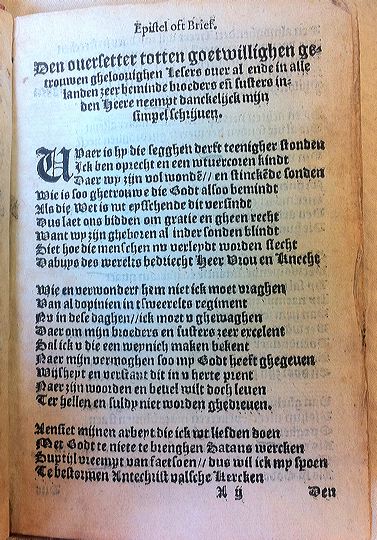 Epistel oft Brief.
Den ouersetter totten goetwillighen ge-
trouwen gheloouighen Lesers ouer al ende in alle
landen zeer beminde bloeders eñ susters in-
den Heere neempt danckelijck mijn
simpel schrijuen.
Waer is hy die segghen derf teenigher stonden
Ick ben oprecht en een wtuercoren kindt
Daer wy zijn vol wondē// en stinckēde sonden
Wie is soo ghetrouwe die Godt alsoo bemindt
Als die Wet is wt eysschende dit versindt
Dus laet ons bidden om gratie en gheen recht
Want wy zijn gheboren al inder sonden blindt
Siet hoe die menschen nv verleydt worden slecht
Dabuys des werelts bedriecht Heer Vrou en Knecht
Wie en verwondert hem niet ick moet vraghen
Van al dopinien in tsweerelts regiment
Nv in dese daghen//ick moet v ghewaghen
Daer om mijn broeders en susters zeer excelent
Sal ick v die een weynich maken bekent
Naer mijn vermoghen soo my Godt heeft ghegeuen
Wijsheyt en verstant dit in v herte prent
Naer zijn woorden en beuel wilt doch leuen
Ter hellen en suldy niet worden ghedreuen.
Aensiet mijnen arbeyt die ick wt liefden doen
Met Godt te niete te brenghen Satans wercken
Suptijl vreempt van faetsoen// dus wil ick my spoen
Te bestormen Antechrist valsche Kercken
A ij Den